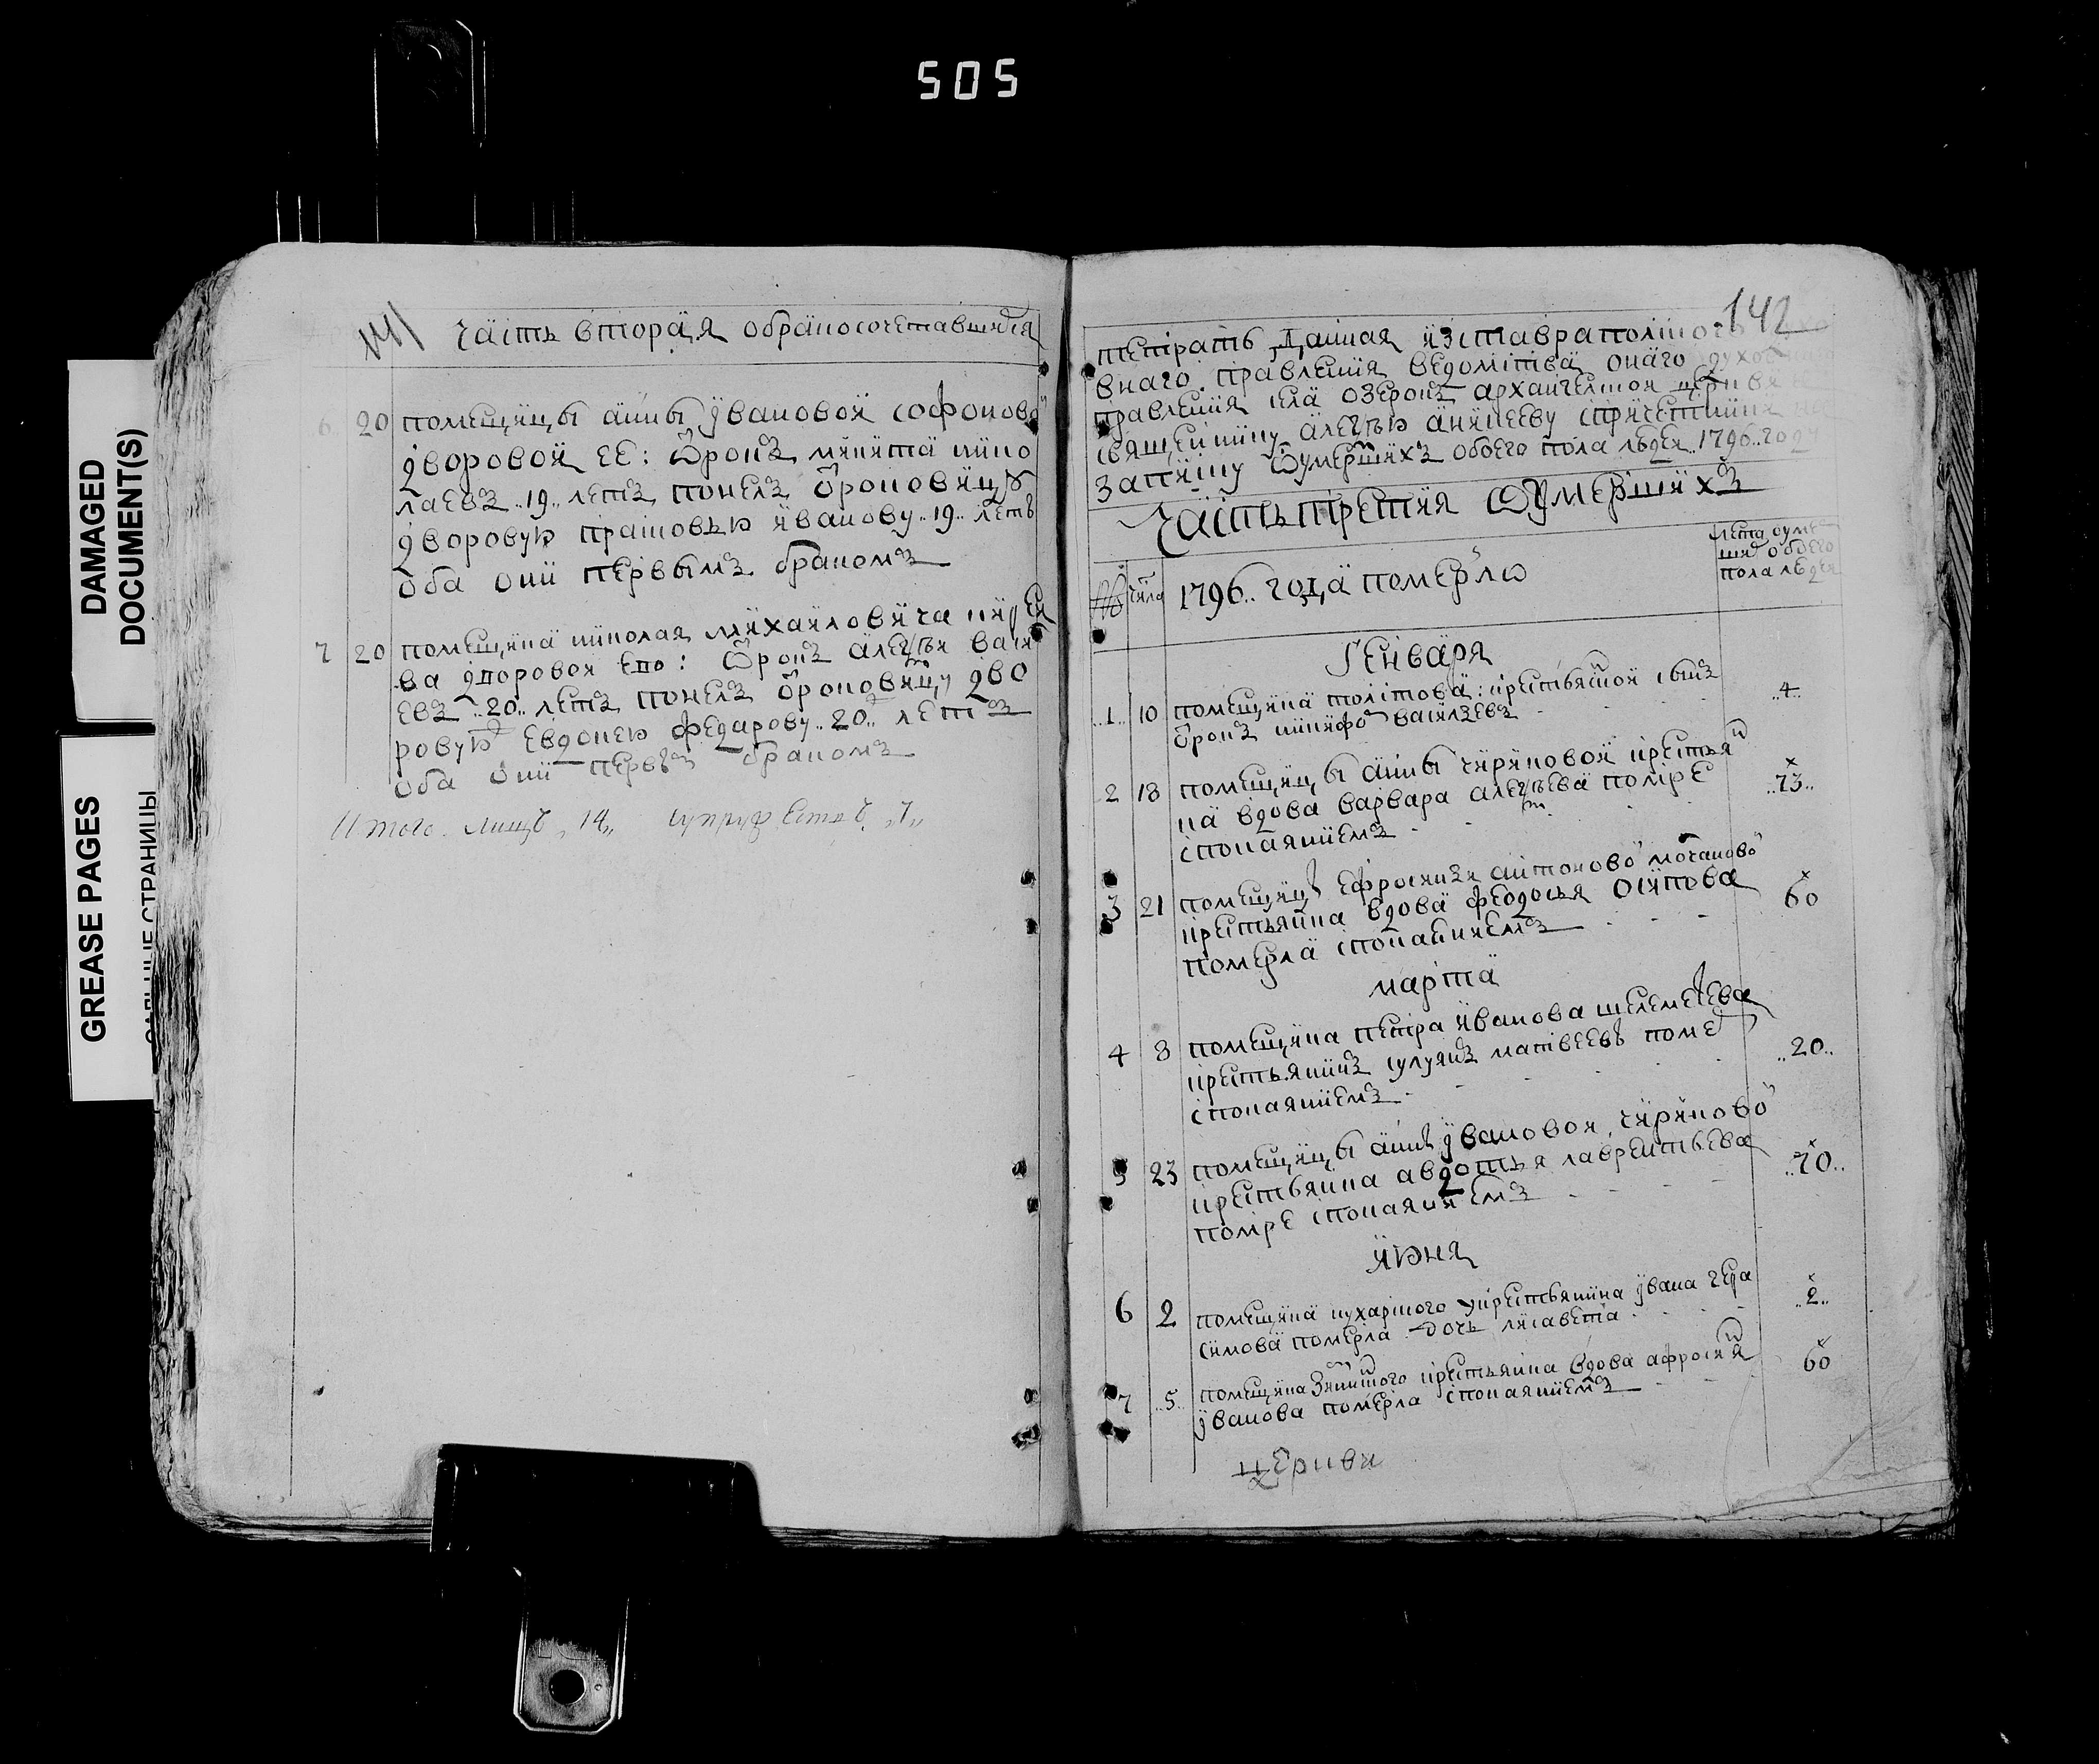 505
DAMAGED
DOCUMENT(S)
GREASE PAGES
САЛЬНЫЕ СТРАНИЦЫ
часть вторая обракосочетавшихся
6 20 помещицы анны ивановой софонов
дворовой ее: отрокъ никита нико
лаевъ 19 летъ понелъ отроковицу
дворовую прасковью иванову 19 летъ
оба они первымъ бракомъ
7 20 помещика николая михаиловича
ва дворовой ево: отрокъ алексей васи
евъ 20 летъ понелъ отроковицу дво
ровую евдокею федарову 20 летъ
оба они первымъ бракомъ
Итого лицъ 14 супружествъ 7
142
тетрать данная изставраполского
внаго правления ведомства онаго духов
правления села озерокъ архангелской церкви
священнику алексею аникееву спричетники
записку оумершихъ обоего пола людей 1796 году
Часть третия оумершихъ
числа 1796 года померло
лета оуме
ших обоего
пола людей
Генваря
1 10 помещика толстова: крестьянской сынъ
отрокъ никифо василевъ 4
2 18 помещицы анны чириковой крестья
ка вдова варвара алексеева помре 73
спокаяниемъ
3 21 помещицы ефросиньи антоново мочаново
крестьянка вдова федосья осипова 60
померла спокаяниемъ
марта
4 8 помещика петра иванова шелеметева
крестьянинъ лукиянъ матвеевъ поме 20
спокаяниемъ
5 23 помещицы анны ивановой чириково
крестьянка авдотья лаврентьева 70
помре спокаяниемъ
июня
6 2 помещика кухарского крестьянина ивана гера
симова померла дочь лисавета 2
7 5 помещика крестьянка вдова афросинья
иванова померла спокаяниемъ 60
церкви